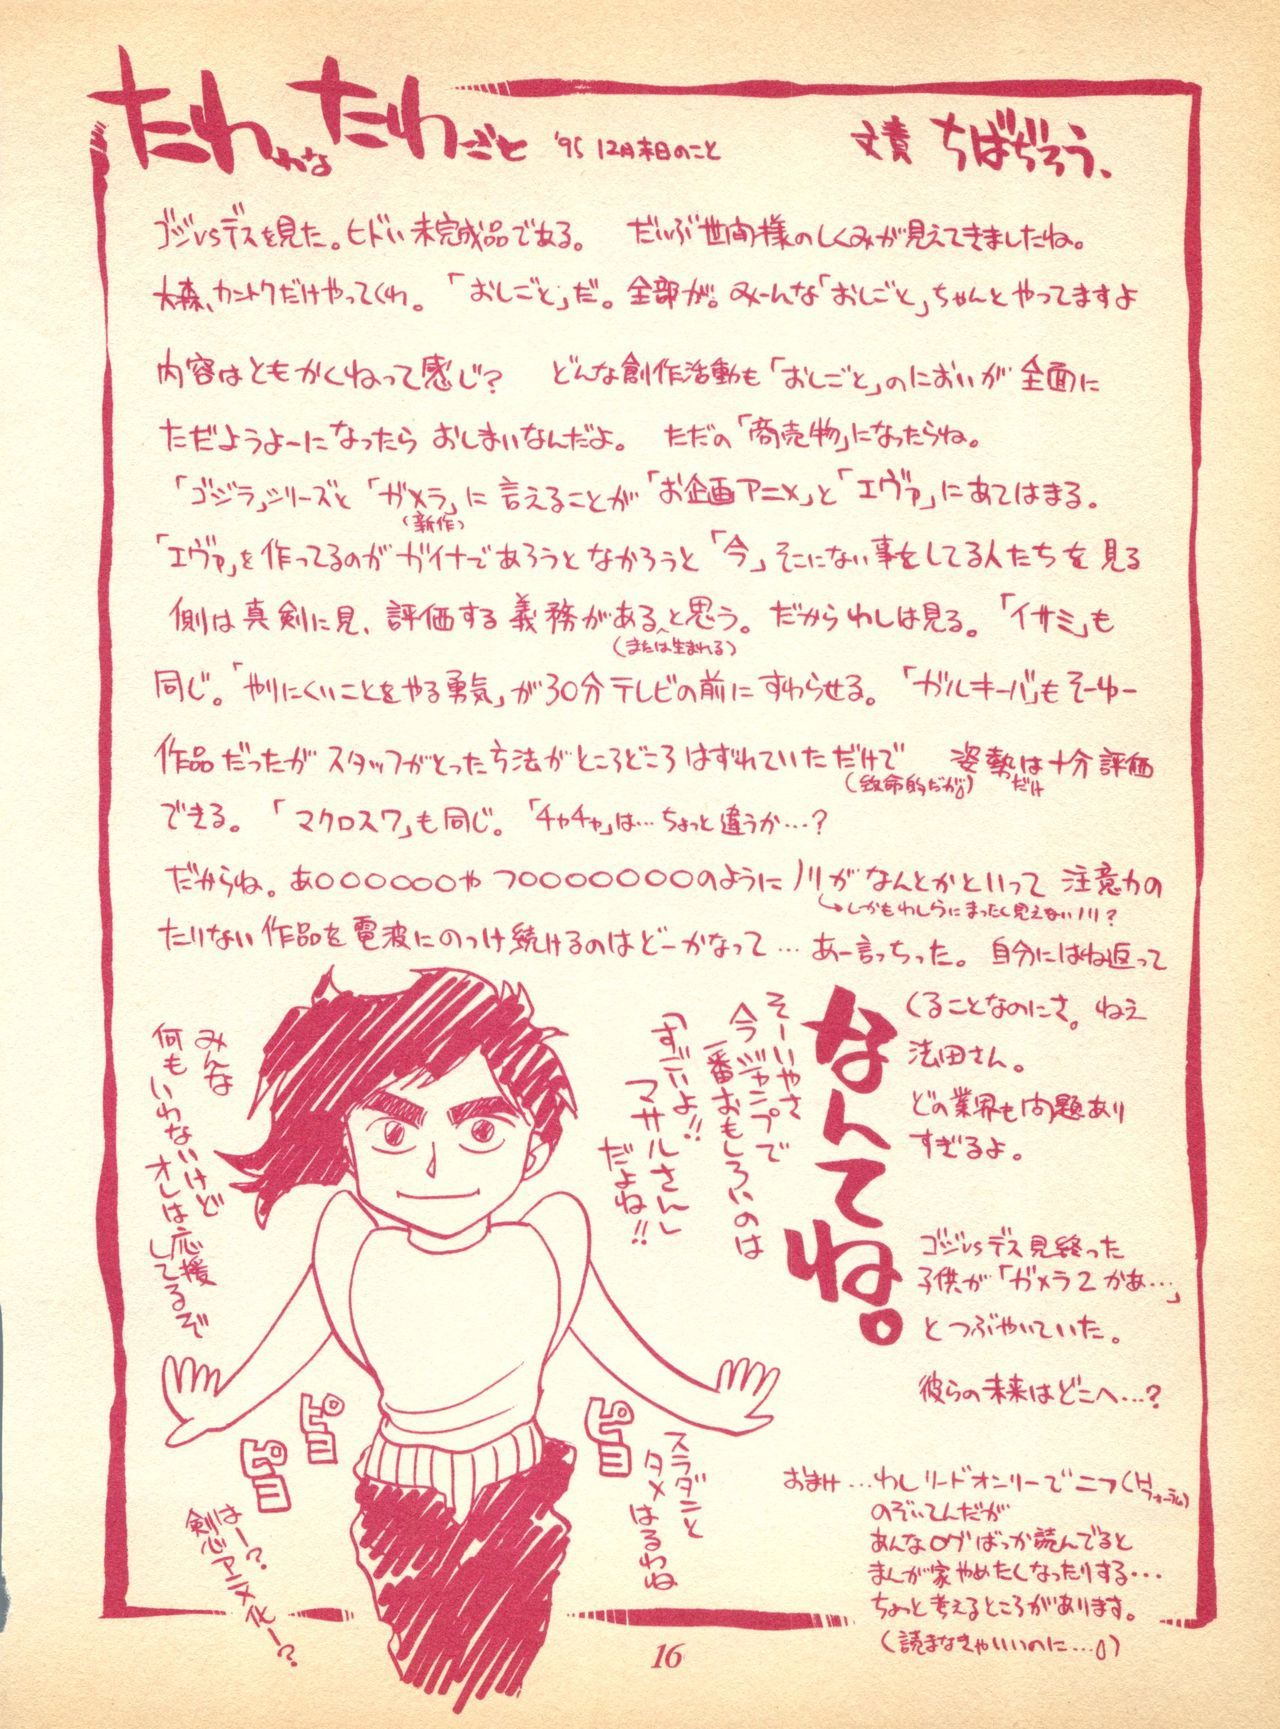 たわわなたわごと '95 12月末日のこと
文責 ちばぢろう、
ゴジvsデスを見た。ヒドい未完成品である。 だいぶ世間様のしくみが見えてきましたね。
大森、カントクだけやってくれ。「おしごと」だ。全部が。みーんな「おしごと」ちゃんとやってますよ
内容はともかくねって感じ? どんな創作活動も「おしごと」のにおいが全面に
ただようよーになったら おしまいなんだよ。 ただの「商売物」になったらね。
「ゴジラ」シリーズと「ガメラ」に言えることが「お企画アニメ」と「エヴァ」にあてはまる。
(新作)
「エヴァ」を作ってるのがガイナであろうとなかろうと「今」そこにない事をしてる人たちを見る
側は真剣に見、評価する義務があると思う。だからわしは見る。「イサミ」も
(または生まれる)
同じ。「やりにくいことをやる勇気」が30分テレビの前にすわらせる。「ガルキーバ」もそーゆー
作品だったがスタッフがとった方法がところどころはずれていただけで 姿勢は十分評価
(致命的だが。) だけ
できる。「マクロス7」も同じ。「チャチャ」は…ちょっと違うか…?
だからね。あ○○○○○○やつ○○○○○○○のようにノリがなんとかといって 注意力の
しかもわしらにまったく見えないノリ?
たりない作品を電波にのっけ続けるのはどーかなって…あー言っちった。自分にはね返って
くることなのにさ。ねえ
法田さん。
どの業界も問題あり
すぎるよ。
なんてね。
ゴジvsデス見終った
子供が「ガメラ2かあ…」
とつぶやいていた。
彼らの未来はどこへ…?
そーいやさ
今ジャンプで
一番おもしろいのは
「すごいよ!!
マサルさん」
だよね!!
みんな
何もいわないけど
オレは応援
してるぞ
ピヨ
ピヨ
ピヨ
スラダンと
タメはるわね
はー?
剣心アニメ化ー?
おまけ…わしリードオンリーでニフ(Hフォーラム)
のぞいてんだが
あんなログばっか読んでると
まんが家やめたくなったりする…
ちょっと考えるところがあります。
(読まなきゃいいのに…。)
16